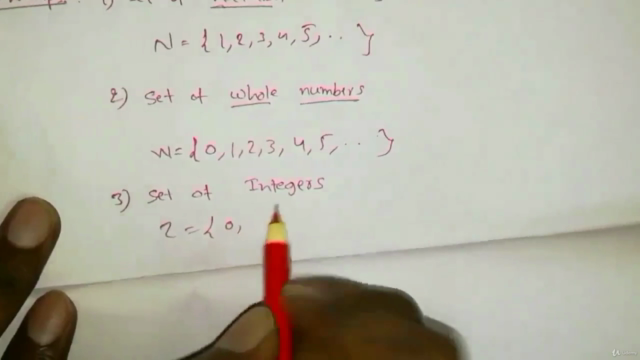 1) Set of
N = { 1, 2, 3, 4, 5, .. }
2) Set of whole numbers
W = { 0, 1, 2, 3, 4, 5, ... }
3) Set of Integers
Z = { 0,